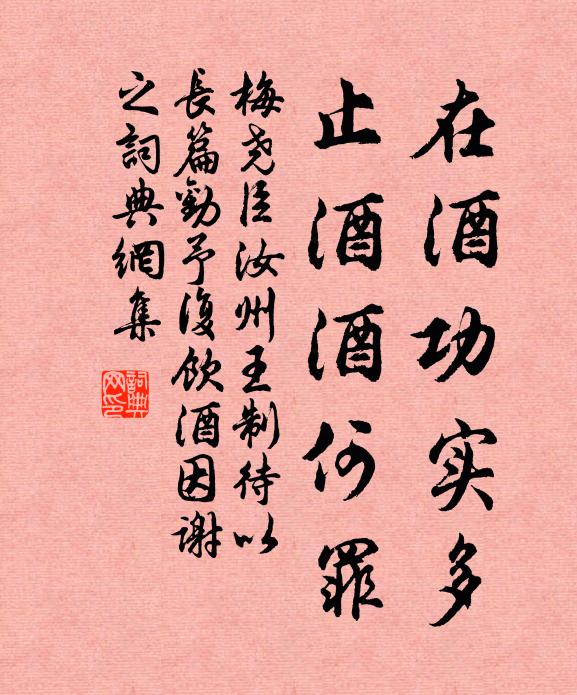 在酒功实多
止酒酒何罪
梅尧臣汝州王制待以
長篇勸予復飲酒因谢
之詞典網集
詞典
网印